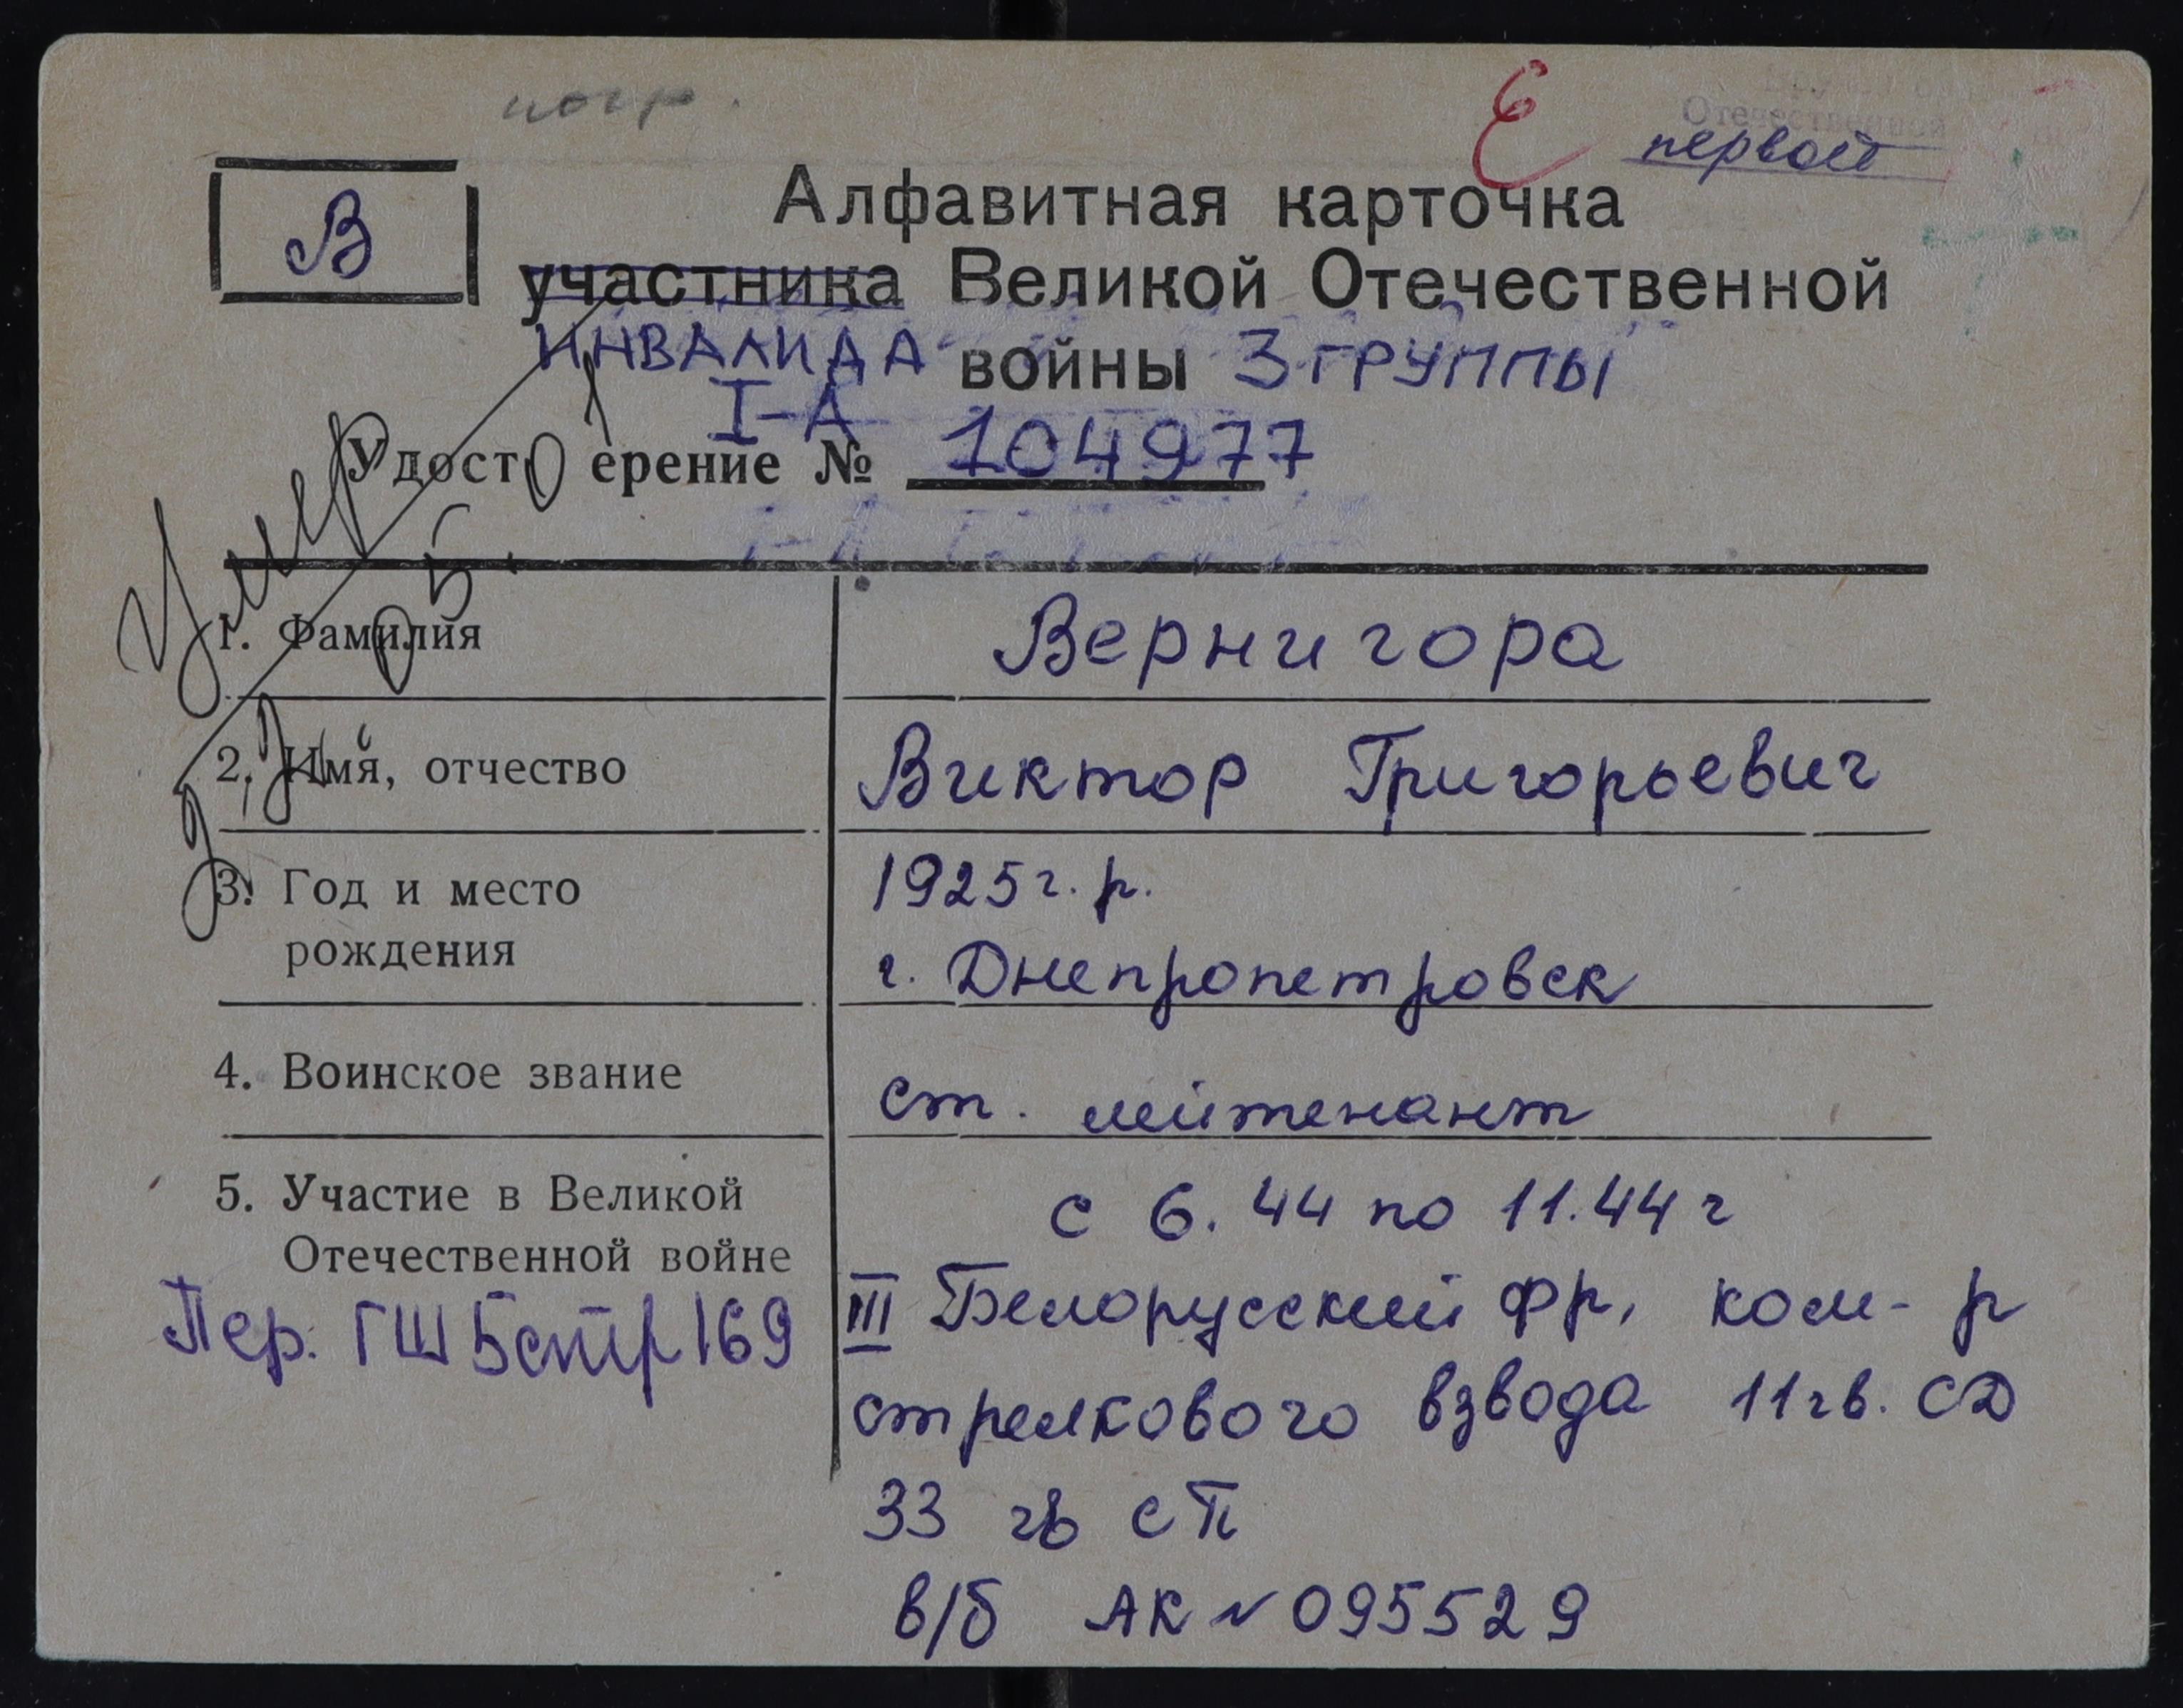 погр.
Е
Отечественной
первой
В
Алфавитная карточка
участника Великой Отечественной
ИНВАЛИДА войны 3 ГРУППЫ
I-А
Удостоверение № 104977
Умер
1. Фамилия Вернигора
2. Имя, отчество Виктор Григорьевич
3. Год и место 1925 г. р.
рождения г. Днепропетровск
4. Воинское звание ст. лейтенант
5. Участие в Великой с 6.44 по 11.44 г
Отечественной войне III Белорусский фр, ком-р
Пер. ГШ 5 стр 169
стрелкового взвода 11 гв. СД
33 гв СП
в/б АК № 095529